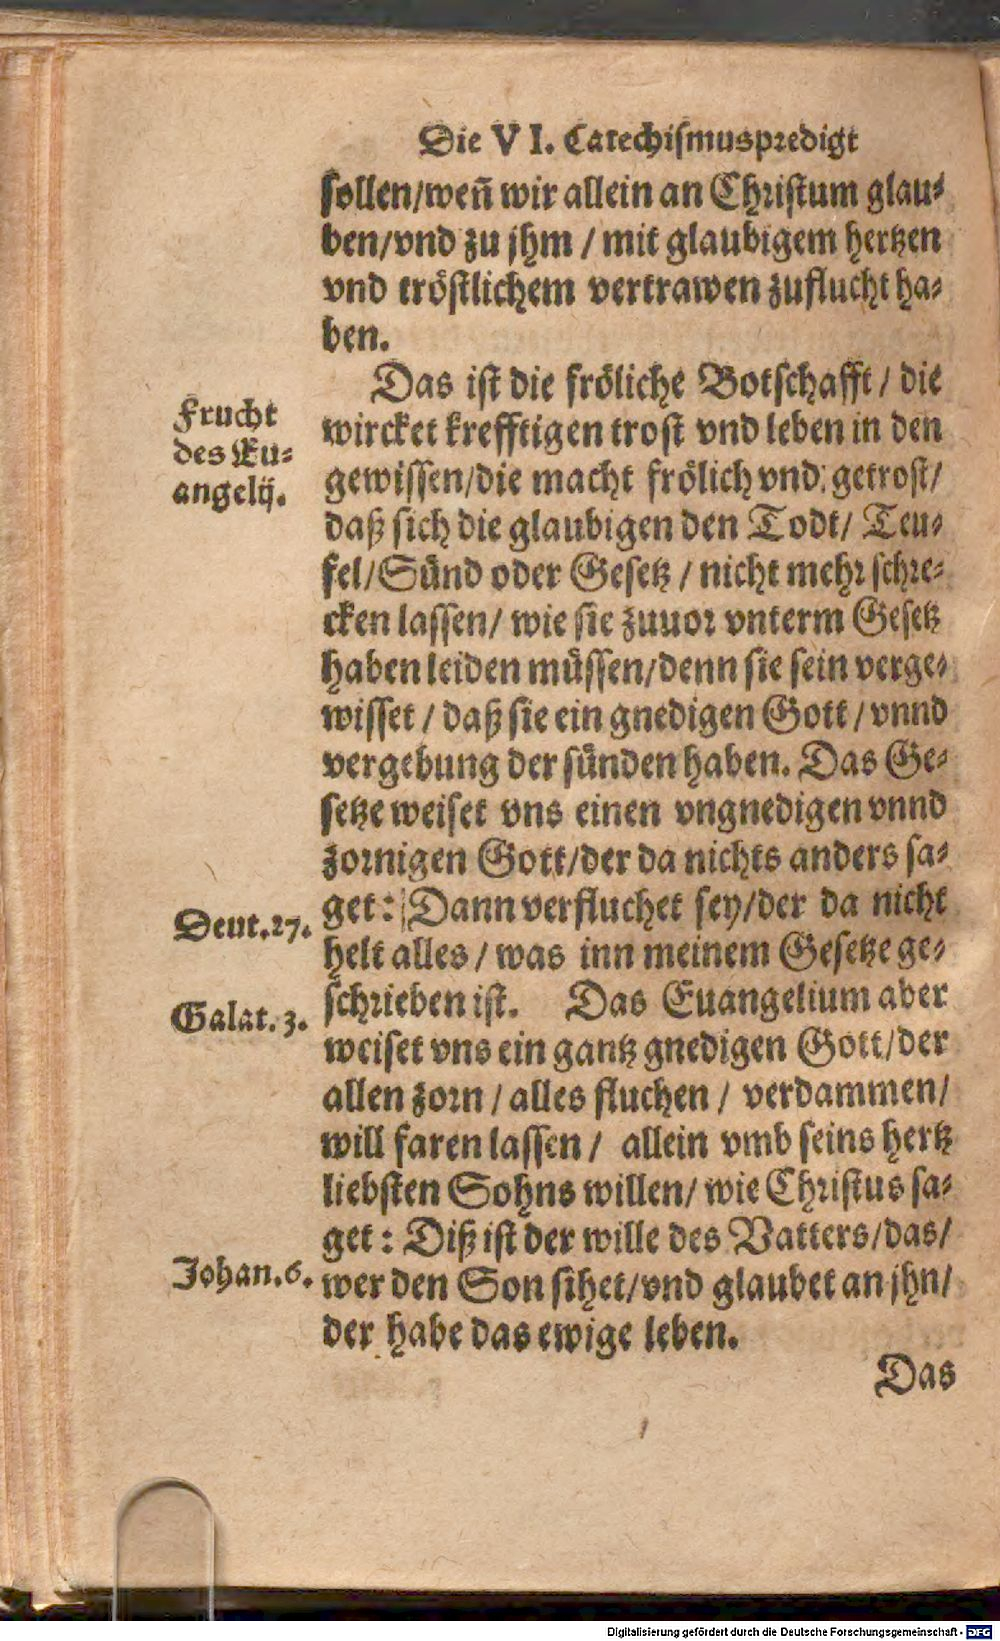 Die VI. Catechismuspredigt
sollen/weñ wir allein an Christum glau-
ben/vnd zu jhm / mit glaubigem hertzen
vnd tröstlichem vertrawen zuflucht ha-
ben.
Das ist die fröliche Botschafft / die
Frucht
des Eu-
angelij.
wircket krefftigen trost vnd leben in den
gewissen/die macht frölich vnd getrost/
daß sich die glaubigen den Todt/ Teu-
fel/Sünd oder Gesetz / nicht mehr schre-
cken lassen/ wie sie zuuor vnterm Gesetz
haben leiden müssen/denn sie sein verge-
wisset / daß sie ein gnedigen Gott / vnnd
vergebung der sünden haben. Das Ge-
setze weiset vns einen vngnedigen vnnd
zornigen Gott/der da nichts anders sa-
Deut.27.
get: Dann verfluchet sey/der da nicht
helt alles / was inn meinem Gesetze ge-
Galat. 3.
schrieben ist. Das Euangelium aber
weiset vns ein gantz gnedigen Gott/der
allen zorn / alles fluchen / verdammen/
will faren lassen / allein vmb seins hertz
liebsten Sohns willen/ wie Christus sa-
get : Diß ist der wille des Vatters/das/
Johan.6.
wer den Son sihet/vnd glaubet an jhn/
der habe das ewige leben.
Das
Digitalisierung gefördert durch die Deutsche Forschungsgemeinschaft - DFG